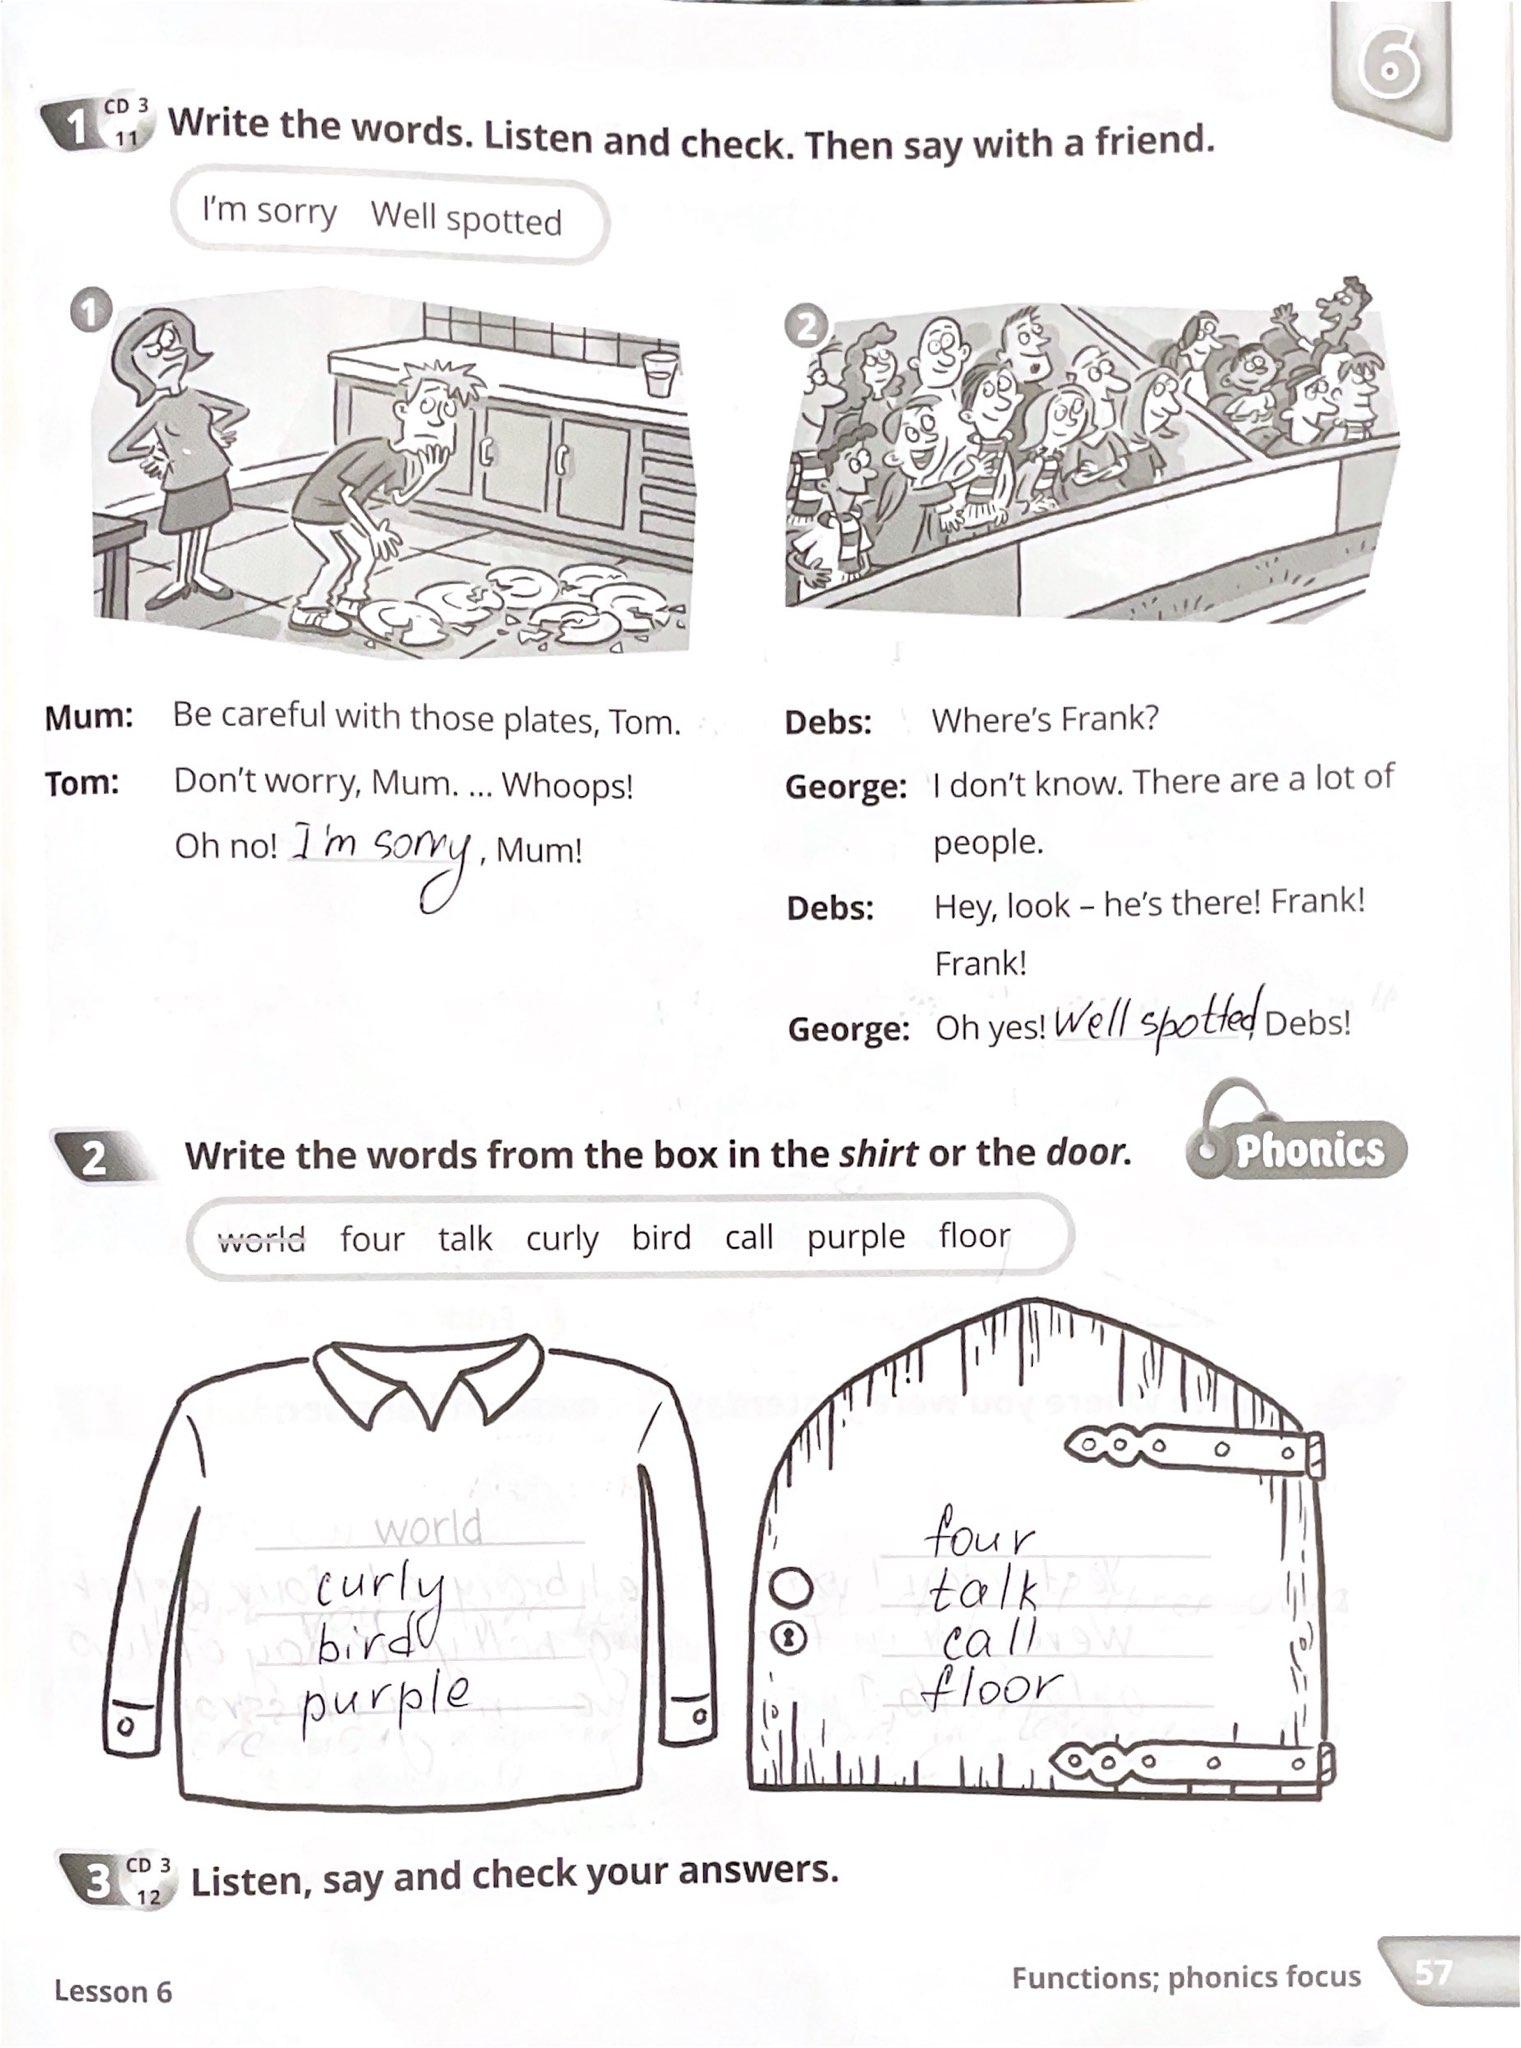 6
1 CD 3 11 Write the words. Listen and check. Then say with a friend.
I'm sorry Well spotted
1
2
Mum: Be careful with those plates, Tom.
Tom: Don't worry, Mum. ... Whoops!
Oh no! I'm sorry, Mum!
Debs: Where's Frank?
George: I don't know. There are a lot of
people.
Debs: Hey, look – he's there! Frank!
Frank!
George: Oh yes! Well spotted, Debs!
2 Write the words from the box in the shirt or the door.
Phonics
world four talk curly bird call purple floor
world
curly
bird
purple
four
talk
call
floor
3 CD 3 12 Listen, say and check your answers.
Lesson 6
Functions; phonics focus 57